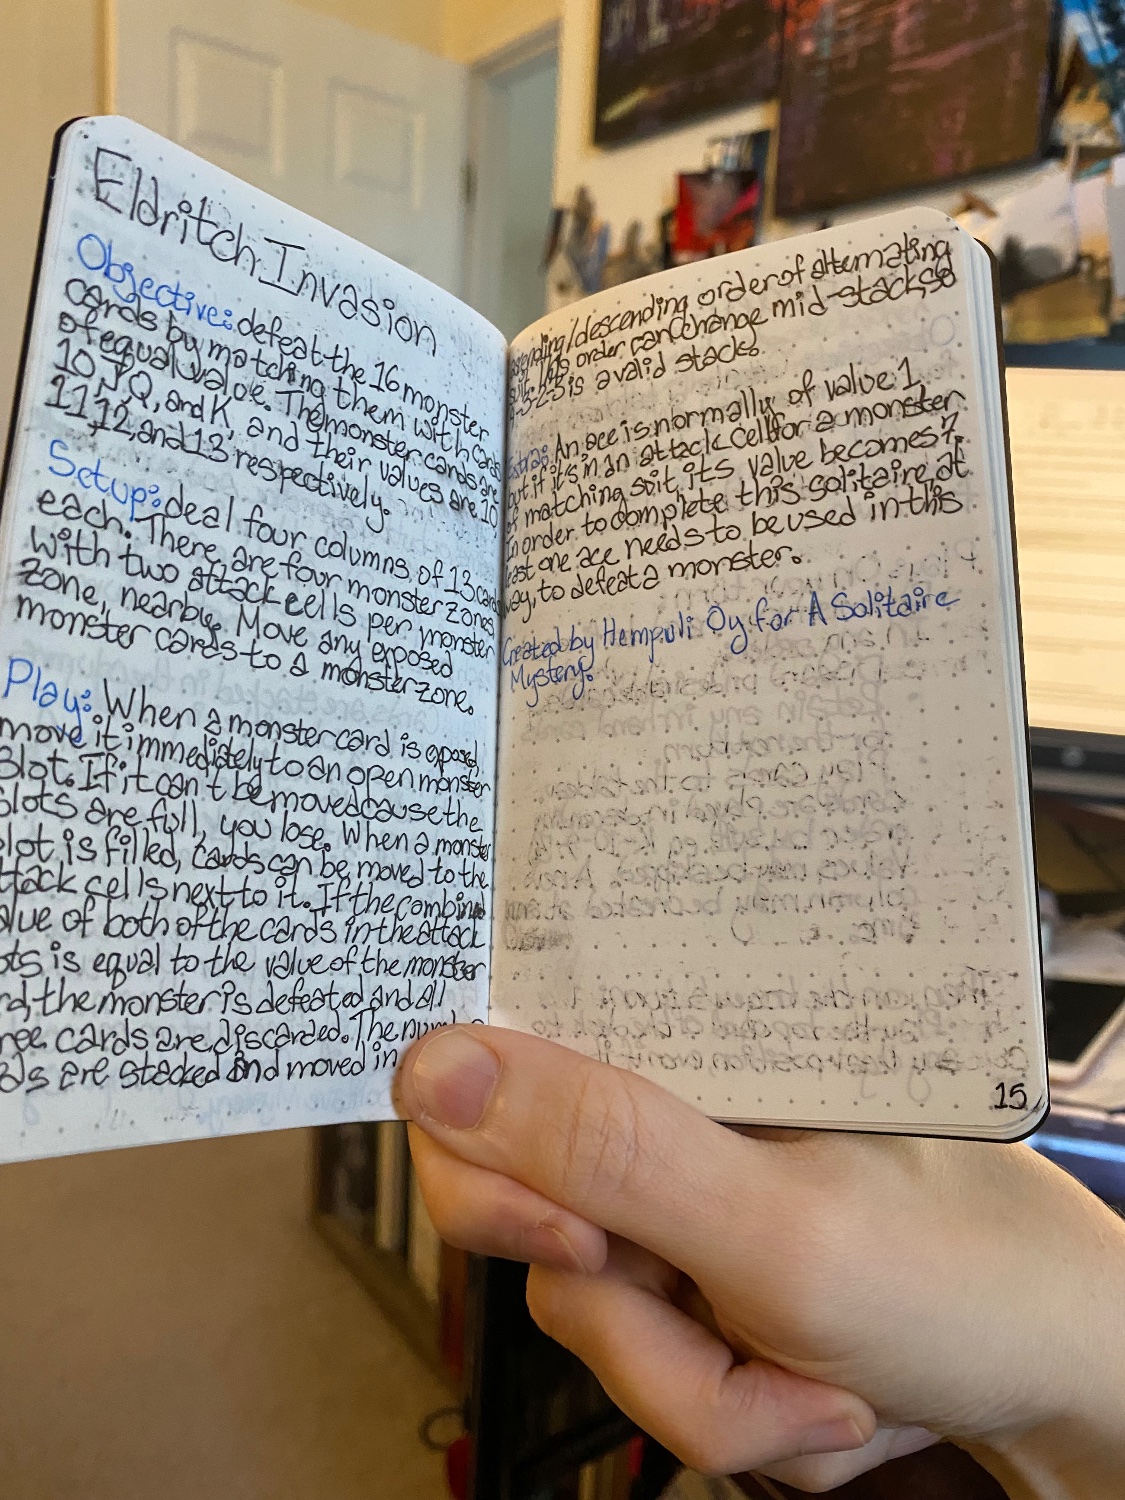 Eldritch Invasion
Objective: defeat the 16 monster
cards by matching them with cards
of equal value. The monster cards are
10, J, Q, and K, and their values are 10
11, 12, and 13 respectively.
Setup: deal four columns of 13 cards
each. There are four monster zones
with two attack cells per monster
zone, nearby. Move any exposed
monster cards to a monster zone.
Play: When a monster card is exposed
move it immediately to an open monster
slot. If it can't be moved cause the
slots are full, you lose. When a monster
slot is filled, cards can be moved to the
attack cells next to it. If the combine
value of both of the cards in the attack
ots is equal to the value of the monster
rd, the monster is defeated and all
ree cards are discarded. The number
ds are stacked and moved in
ending/descending order of alternating
suit. This order can change mid-stack, so
4-3-2-3 is a valid stack.
Extra: An ace is normally of value 1,
but if it's in an attack cell for a monster
of matching suit, its value becomes 7.
In order to complete this solitaire at
least one ace needs to be used in this
way, to defeat a monster.
Created by Hempuli Oy for A Solitaire
Mystery.
15